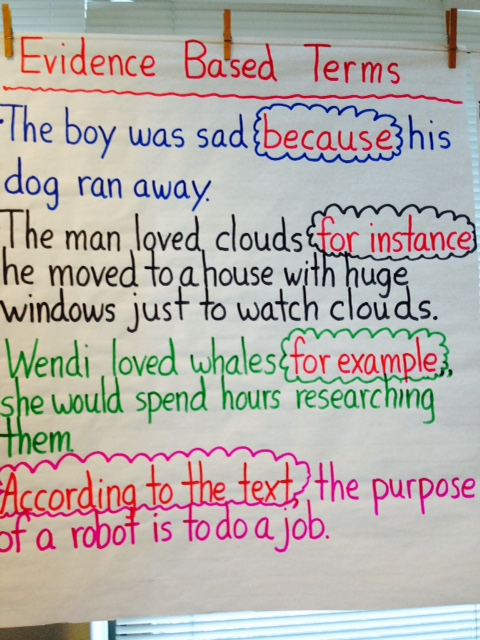 Evidence Based Terms
The boy was sad because his
dog ran away.
The man loved clouds for instance
he moved to a house with huge
windows just to watch clouds.
Wendi loved whales for example,
she would spend hours researching
them.
According to the text, the purpose
of a robot is to do a job.